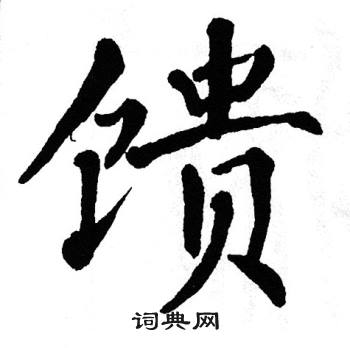 馈
词典网